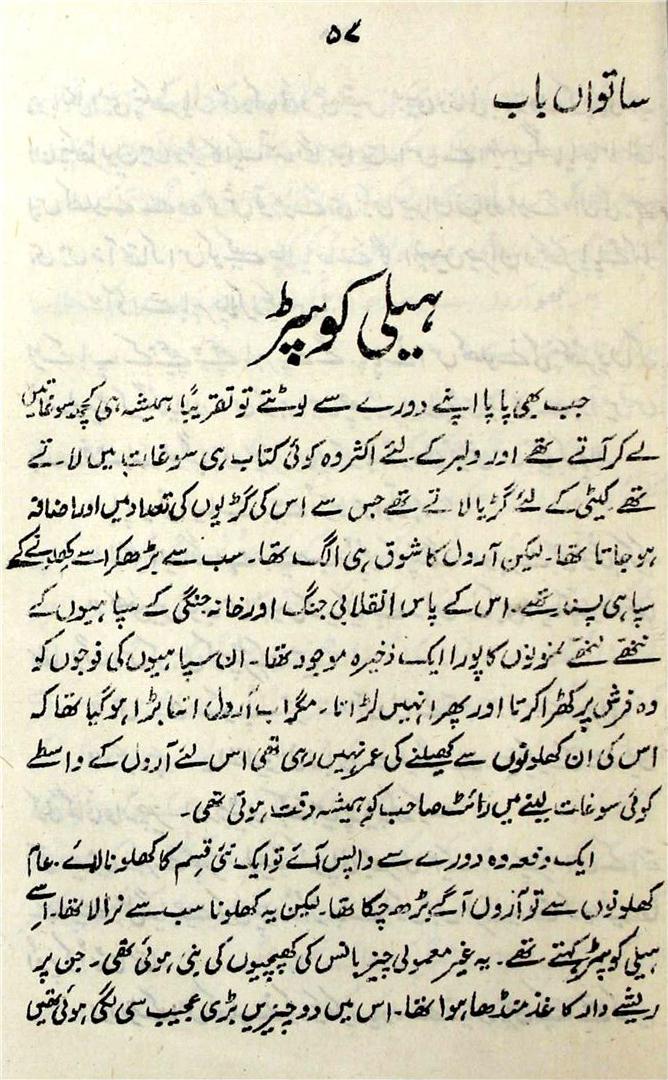 ۵۷
ساتواں باب
ہیلی کوپٹر
جب بھی پاپا اپنے دورے سے لوٹتے تو تقریباً ہمیشہ ہی کچھ سوغاتیں
لے کر آتے تھے اور ولبر کے لئے اکثر وہ کوئی کتاب ہی سوغات میں لاتے
تھے کیٹی کے لئے گڑیا لاتے تھے جس سے اس کی گڑیوں کی تعداد میں اور اضافہ
ہو جاتا تھا۔ لیکن آرول کا شوق ہی الگ تھا۔ سب سے بڑھ کر اسے کھیلنے کے
سپاہی پسند تھے۔ اس کے پاس انقلابی جنگ اور خانہ جنگی کے سپاہیوں کے
ننھے ننھے نمونوں کا پورا ایک ذخیرہ موجود تھا۔ ان سپاہیوں کی فوجوں کو
وہ فرش پر کھڑا کرتا اور پھر انہیں لڑاتا۔ مگر اب آرول اتنا بڑا ہو گیا تھا کہ
اس کی ان کھلونوں سے کھیلنے کی عمر نہیں رہی تھی اس لئے آرول کے واسطے
کوئی سوغات لینے میں رائٹ صاحب کو ہمیشہ دقت ہوتی تھی۔
ایک دفعہ وہ دورے سے واپس آئے تو ایک نئی قسم کا کھلونا لائے۔ عام
کھلونوں سے تو آرول آگے بڑھ چکا تھا۔ لیکن یہ کھلونا سب سے نرالا تھا۔ اسے
ہیلی کوپٹر کہتے تھے۔ یہ غیر معمولی چیز بانس کی کھپچیوں کی بنی ہوئی تھی۔ جن پر
ریشے دار کاغذ منڈھا ہوا تھا۔ اس میں دو چیزیں بڑی عجیب سی لگی ہوئی تھیں